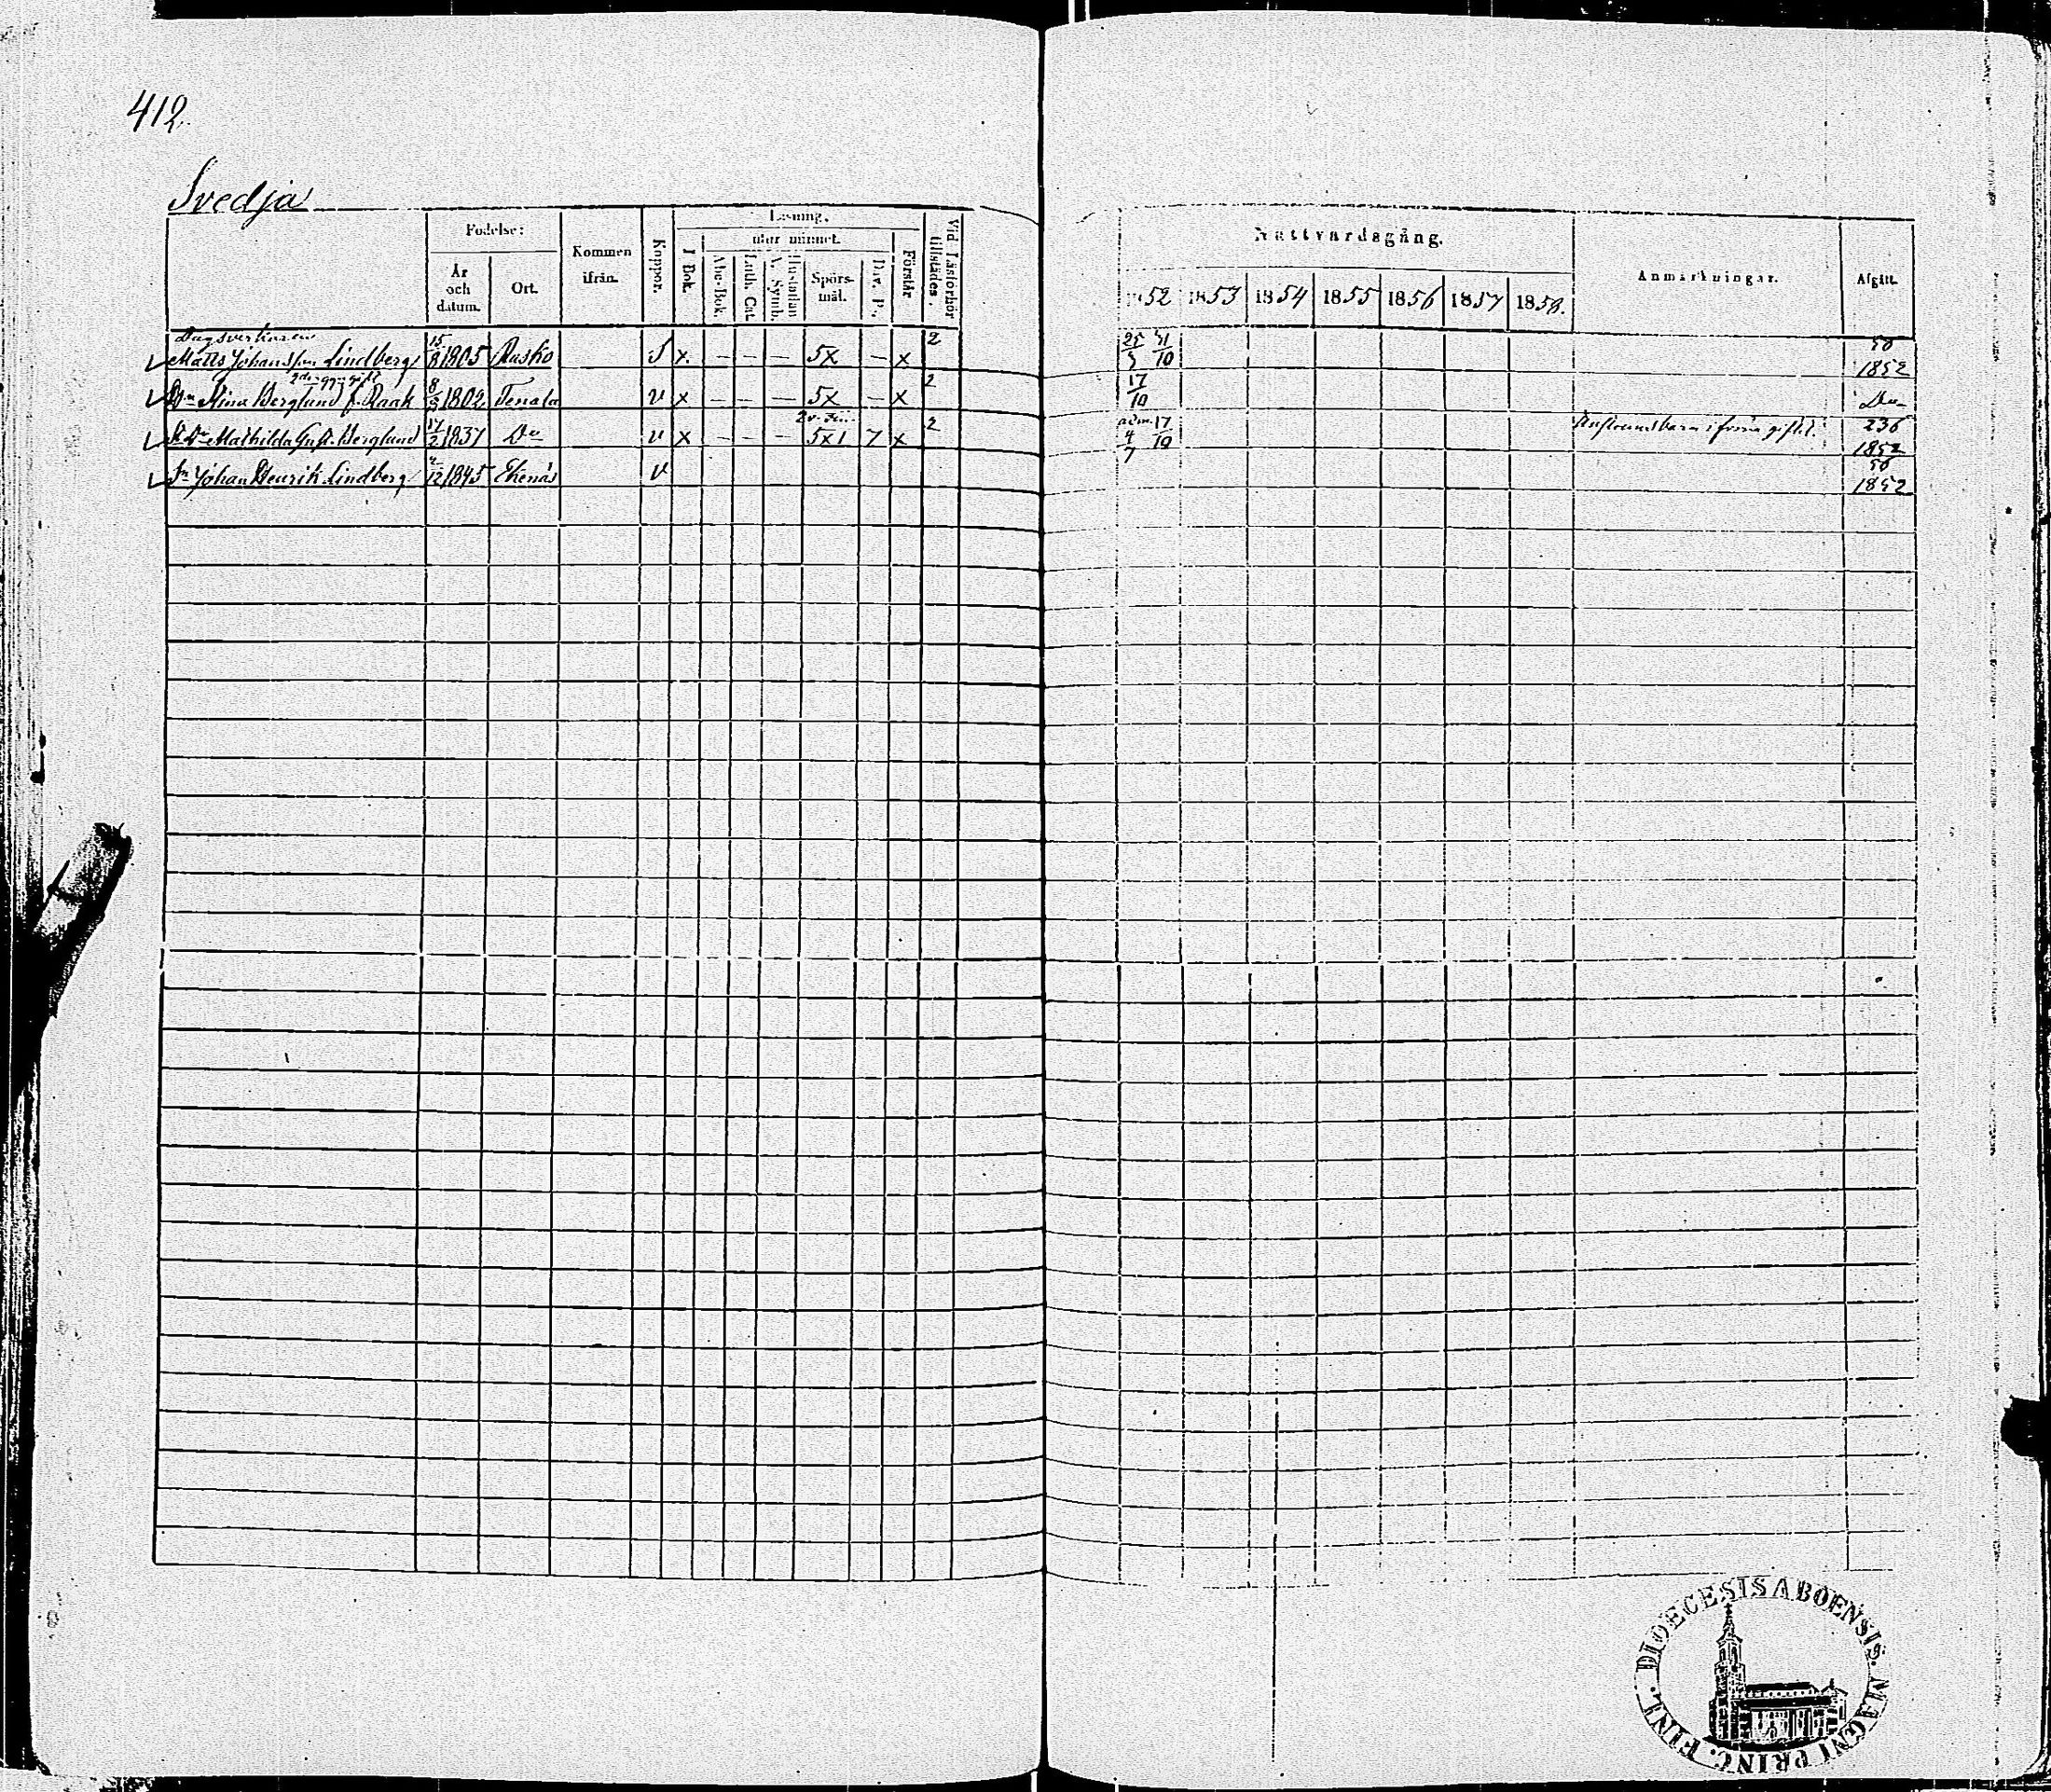 412.
Svedja
Födelse:
Läsning.
utur minnet.
År och datum.
Ort.
Kommen ifrån.
Koppor.
I Bok.
Abc-Bok.
Luth. Cat.
Hustaflan A. Symb.
Spörs-mål.
Dav. Ps.
Förstår
Vid Läsförhör tillstädes.
Nattvardsgång.
1852 1853 1854 1855 1856 1857 1858.
Anmärkningar.
Afgått.
Dagsverkaren
Matts Johansson Lindberg 15/8 1805 Rusko S x. — — — 5x — x 2 25/5 31/10 50 1852
2dra ggn gift
Berglund f. Raak 8/3 1802 Tenala v x — — — 5x — x 2 17/10 Do
Mathilda Gust. Berglund 17/2 1837 Do v x — — — 5x1 7 x 2 adm. 4/7 17/10 1852
Sn Johan Henrik Lindberg 1845 Ekenäs v 50 1852
DIOECESIS ABOENSIS. MAGNI PRINC. FINL.